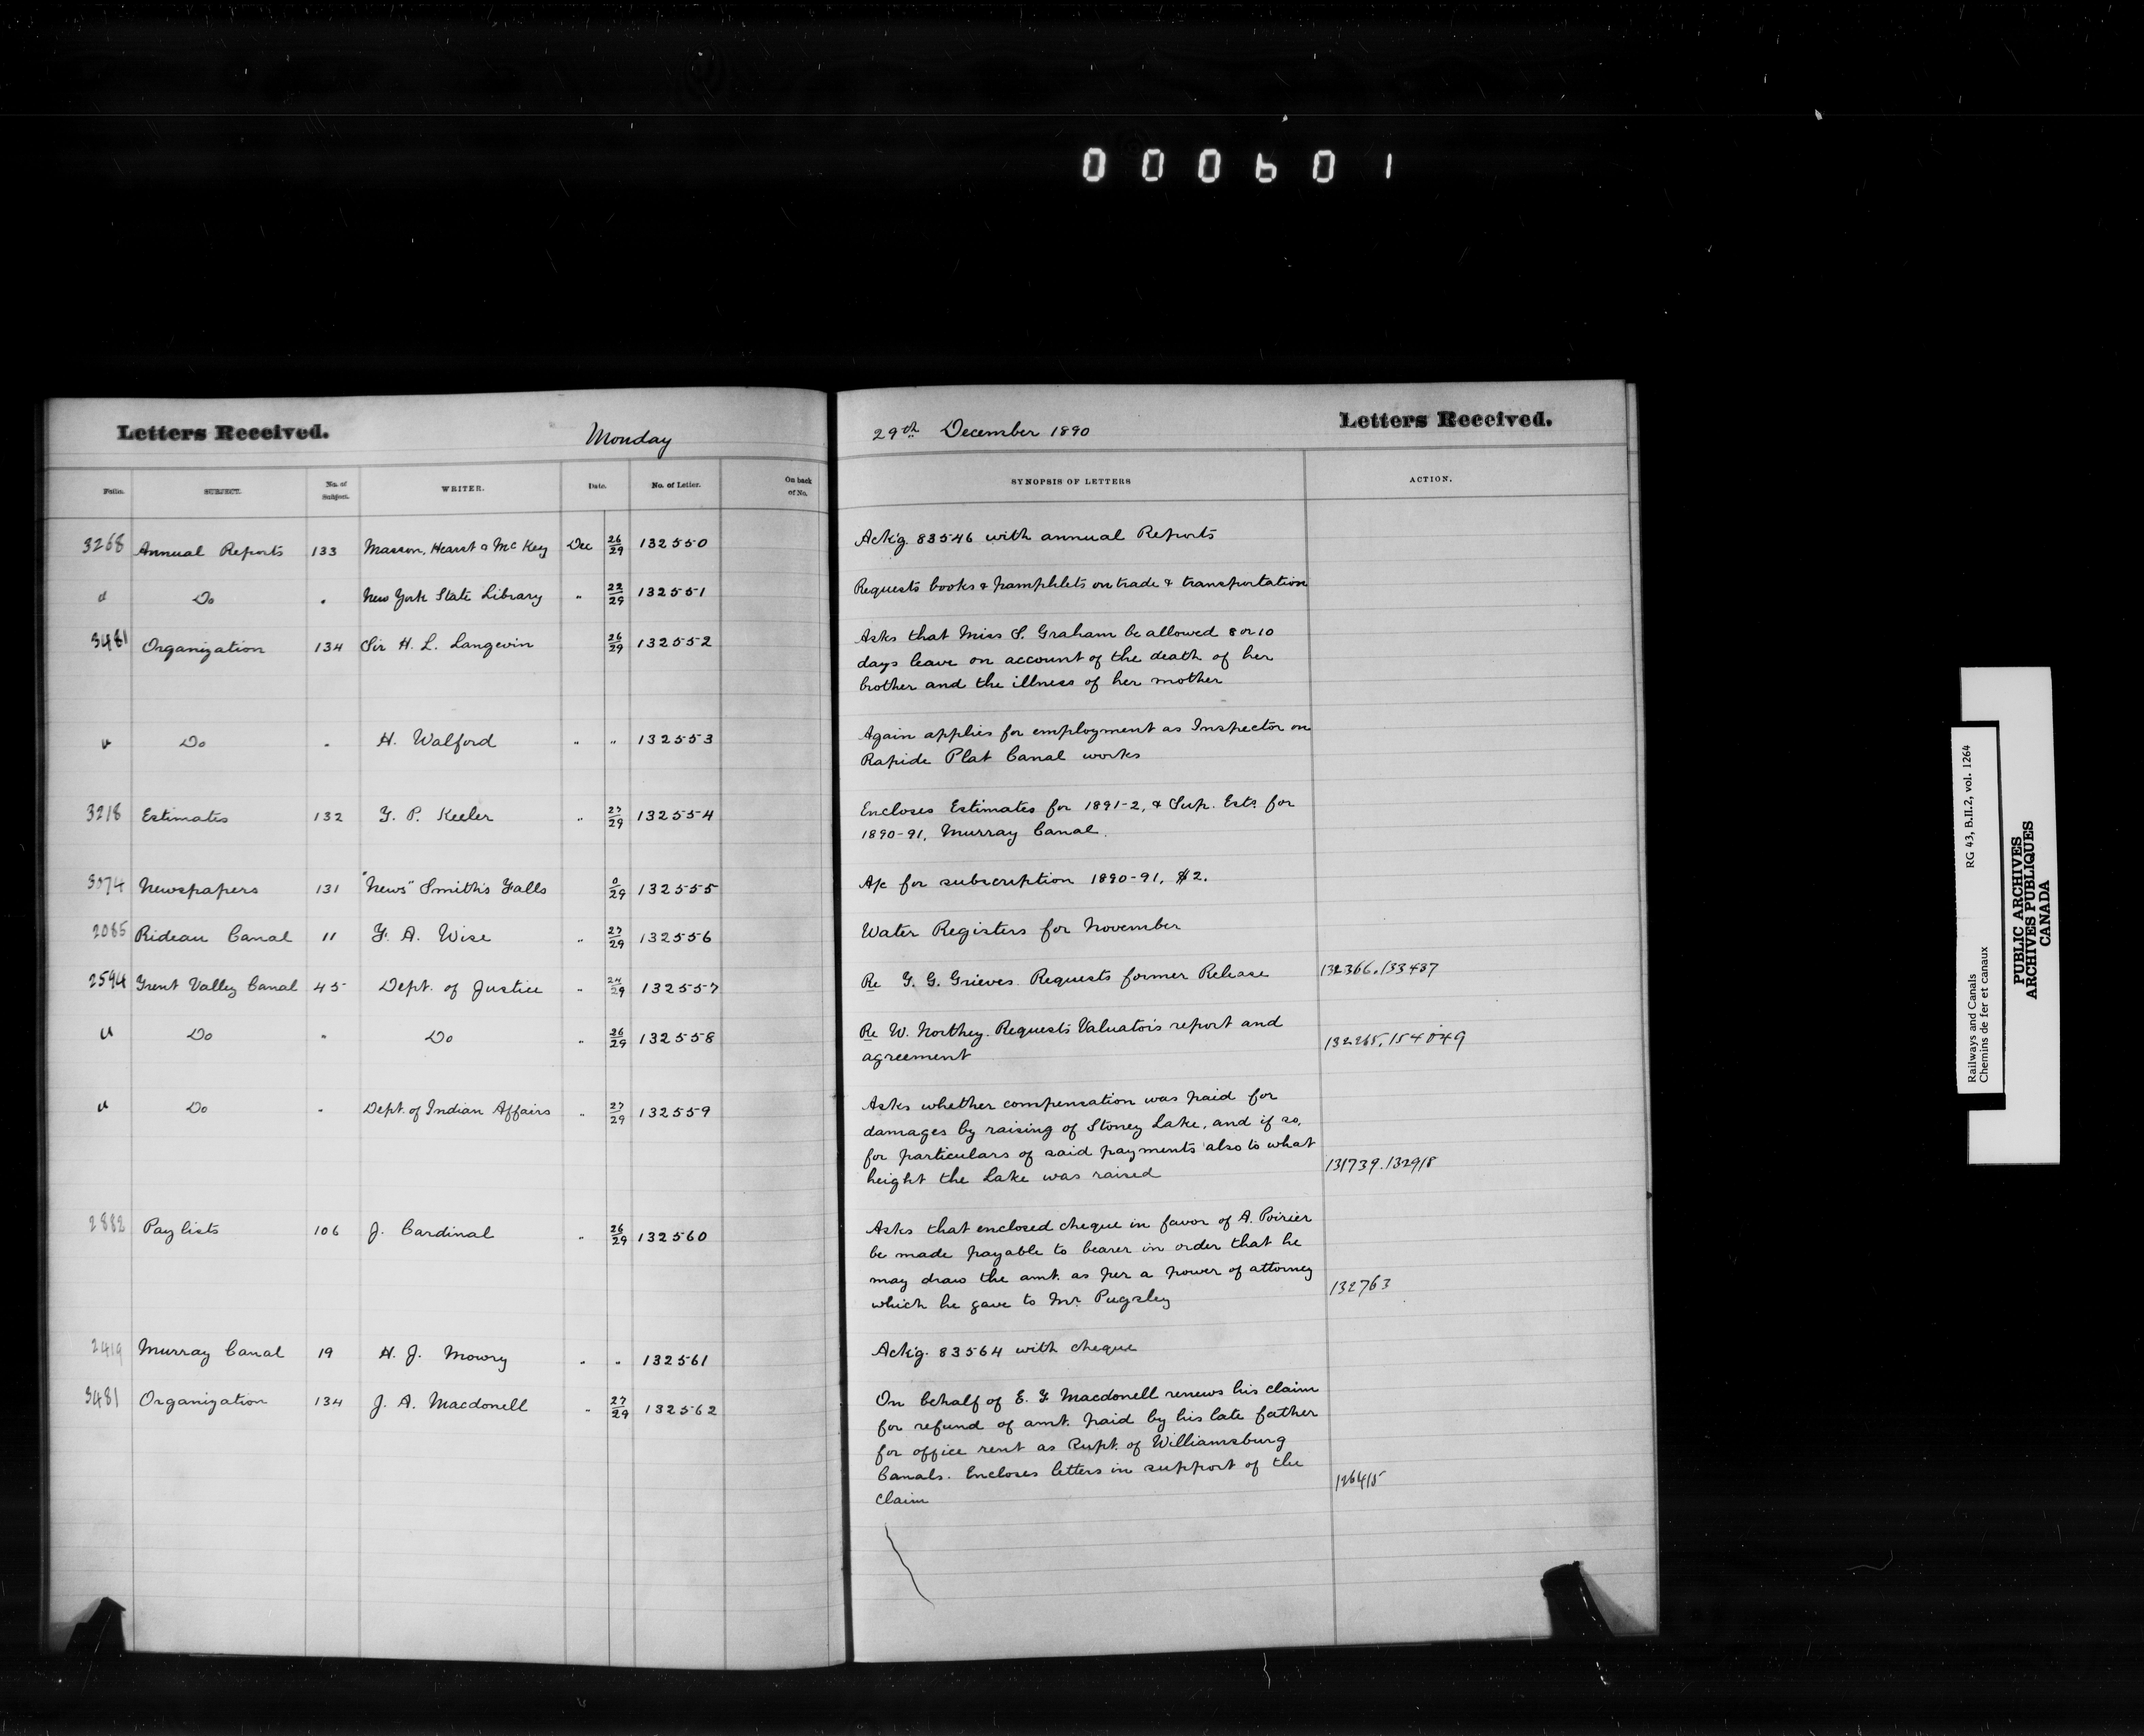 000601
Letters Received. Monday 29th December 1890 Letters Received.
Folio. SUBJECT. No. of Subject. WRITER. Date. No. of Letter. On back of No. SYNOPSIS OF LETTERS ACTION.
3268 Annual Reports 133 Masson, Hearst & McKey Dec 26/29 132550 Ackg. 83546 with annual Reports
" Do " New York State Library " 22/29 132551 Requests books & pamphlets on trade & transportation
3481 Organization 134 Sir H. L. Langevin 26/29 132552 Asks that Miss S. Graham be allowed 8 or 10
days leave on account of the death of her
brother and the illness of her mother
" Do " H. Walford " " 132553 Again applies for employment as Inspector on
Rapide Plat Canal works
3218 Estimates 132 T. P. Keeler " 27/29 132554 Encloses Estimates for 1891-2, & Sup. Ests for
1890-91, Murray Canal.
3074 Newspapers 131 "News" Smith's Falls 0/29 132555 A/c for subscription 1890-91, $2.
2085 Rideau Canal 11 F. A. Wise " 27/29 132556 Water Registers for November
2594 Trent Valley Canal 45 Dept. of Justice " 24/29 132557 Re G. G. Grieves. Requests former Release 132366.133437
" Do " Do " 26/29 132558 Re W. Northey. Requests Valuators report and
agreement 132265.154049
" Do " Dept. of Indian Affairs " 27/29 132559 Asks whether compensation was paid for
damages by raising of Stoney Lake, and if so,
for particulars of said payments also to what
height the Lake was raised 131739.132918
2882 Pay lists 106 J. Cardinal " 26/29 132560 Asks that enclosed cheque in favor of A. Poirier
be made payable to bearer in order that he
may draw the amt. as per a power of attorney
which he gave to Mr. Pugsley 132763
2419 Murray Canal 19 H. J. Mowry " " 132561 Ackg. 83564 with cheque
3481 Organization 134 J. A. Macdonell " 27/29 132562 On behalf of E. F. Macdonell renews his claim
for refund of amt. paid by his late father
for office rent as Supt. of Williamsburg
Canals. Encloses letters in support of the
claim 126415
Railways and Canals RG 43, B.II.2, vol. 1264
Chemins de fer et canaux
PUBLIC ARCHIVES
ARCHIVES PUBLIQUES
CANADA